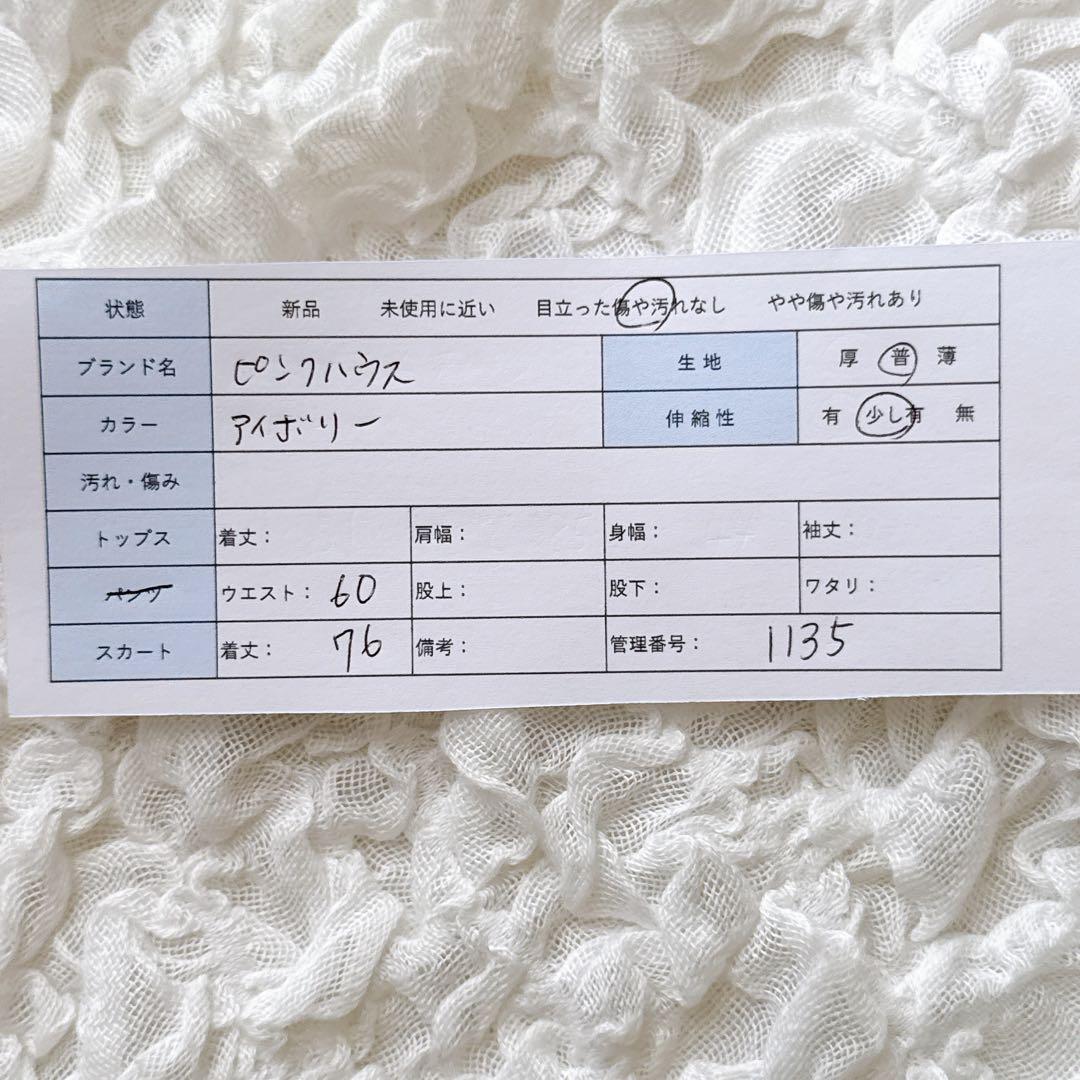 状態 新品 未使用に近い 目立った傷や汚れなし やや傷や汚れあり
ブランド名 ピンクハウス 生地 厚 普 薄
カラー アイボリー 伸縮性 有 少し有 無
汚れ・傷み
トップス 着丈： 肩幅： 身幅： 袖丈：
パンツ ウエスト： 60 股上： 股下： ワタリ：
スカート 着丈： 76 備考： 管理番号： 1135